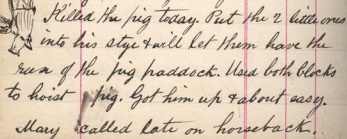 Killed the pig today. Put the 2 little ones
into his stye & will let them have the
run of the pig paddock. Used both blocks
to hoist pig. Got him up & about easy.
Mary called late on horseback.